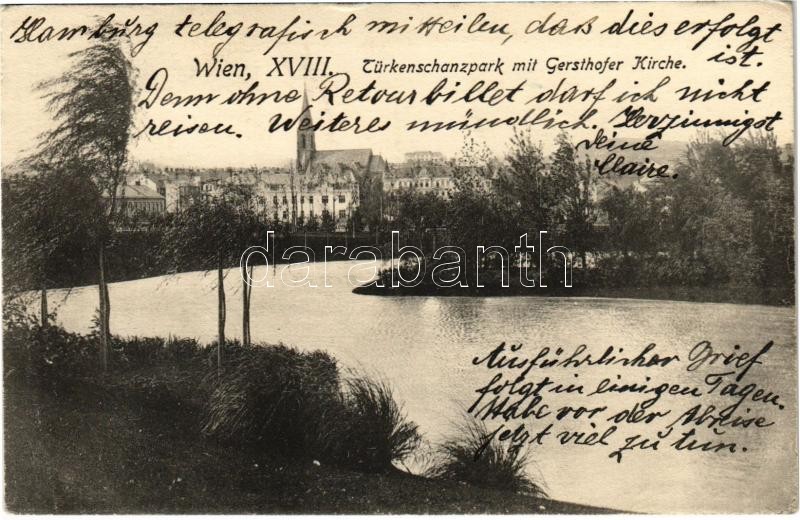 Hamburg telegrafisch mitteilen, daß dies erfolgt
ist.
Wien, XVIII. Türkenschanzpark mit Gersthofer Kirche.
Denn ohne Retourbillet darf ich nicht
reisen. Weiteres mündlich. Herzinnigst
Deine
Claire.
darabanth
Ausführlicher Brief
folgt in einigen Tagen.
Habe vor der Abreise
jetzt viel zu tun.